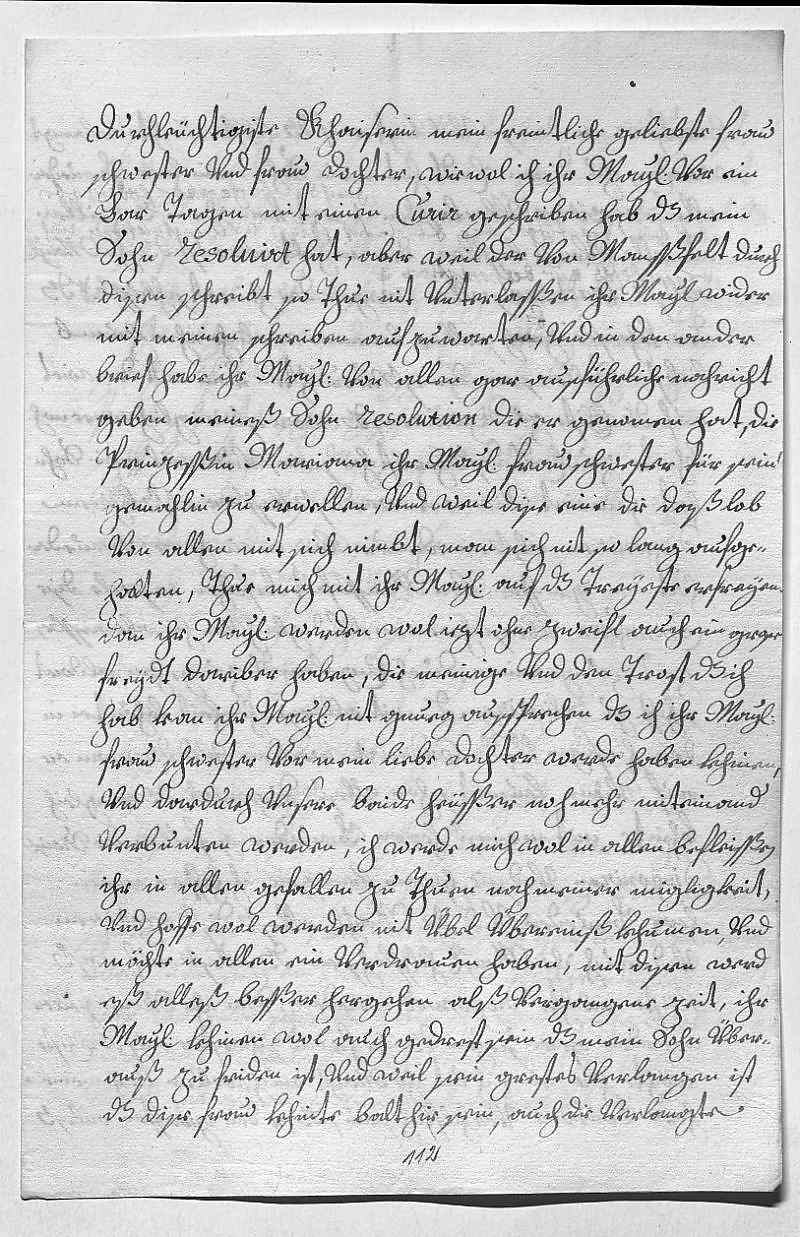 Durchleüchtigiste Khaiserin mein freintliche geliebste frau
schwester Und frau dochter, wiewol ich ihr Mayl: Vor ein
Bar Tagen mit einen Curir geschriben hab dz mein
Sohn resoluirt hat, aber weil der Von Manssfelt durch
disen schreibt so Thue nit Unterlassen ihr Mayl wider
mit meinen schreiben aufzuwarten, Und in den ander
brief habe ihr Mayl: Von allen gar ausführliche nachricht
geben meineß Sohn resolution die er genomen hat, die
Prinzessin Mariana ihr Mayl: frau schwester für sein
gemahlin zu erwellen, Und weil dise eine die daß lob
Von allen mit sich nimbt, man sich nit so lang aufge-
halten, Thue mich mit ihr Mayl: auf dz Treyeste erfreyen
dan ihr Mayl werden wol iezt ohne zweifl auch ein
freydt dariber haben, die meinige Und den Trost dz ich
hab kan ihr Mayl: nit gnueg aussprechen dz ich ihr Mayl:
frau schwester Vor mein liebe dochter werde haben khinen,
Und dardurch Unsere baide heüsser noch mehr miteinand
Verbunten werden, ich werde mich wol in allen befleissen
ihr in allen gefallen zu Thuen nach meiner migligkeit,
Und hoffe wol werden nit Übel Übereinß khumen, Und
möchte in allen ein Verdrauen haben, mit disen werd
eß alleß besser hergehen alß Vergangene zeit, ihr
Mayl: khinen wol auch gedrest sein dz mein Sohn Über-
auß zu friden ist, Und weil sein grestes Verlangen ist
dz dise frau khinte balt hie sein, auch die Verlangte
112